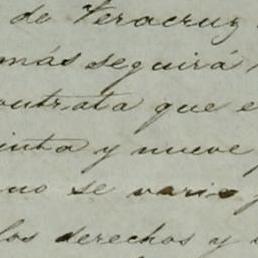 de Veracruz
más seguirá
contrata que e
inta y nueve
no se vario
los derechos y